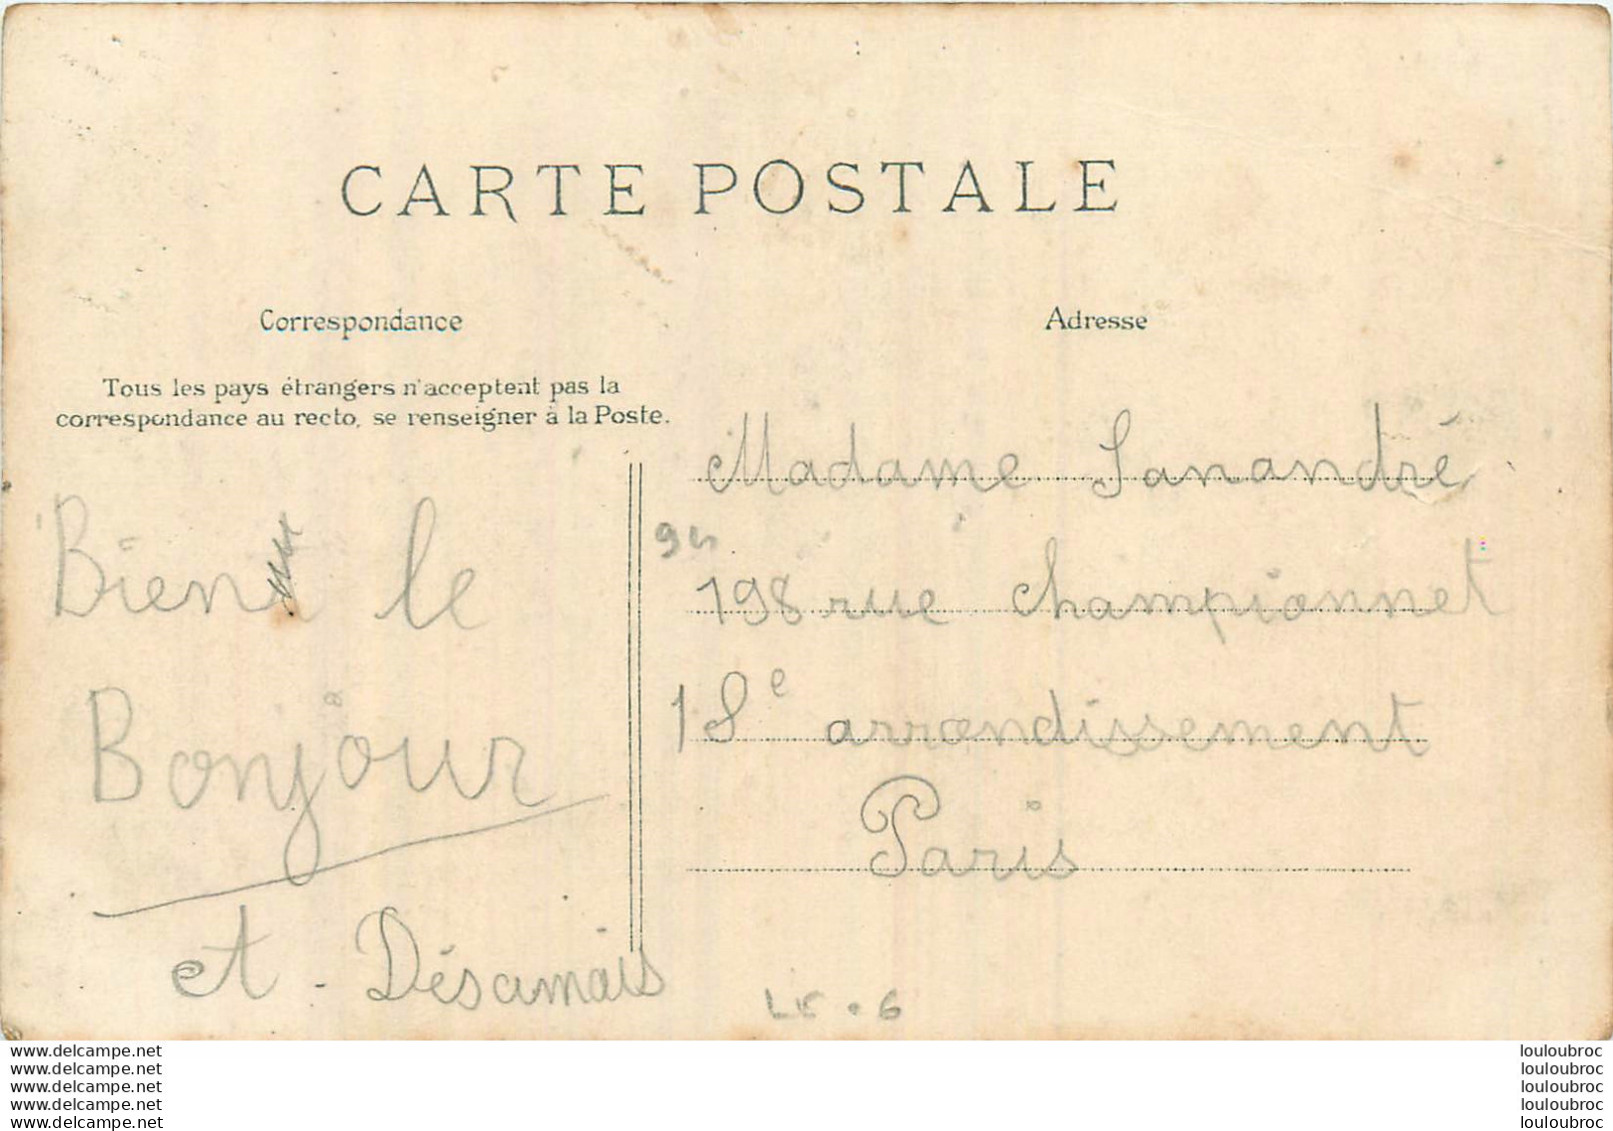 CARTE POSTALE
Correspondance
Tous les pays étrangers n'acceptent pas la
correspondance au recto, se renseigner à la Poste.
Bien le
Bonjour
et. Désamais
Adresse
Madame Sanandré
94
198 rue championnet
18e arrondissement
Paris
www.delcampe.net
www.delcampe.net
www.delcampe.net
www.delcampe.net
www.delcampe.net
louloubroc
louloubroc
louloubroc
louloubroc
louloubroc